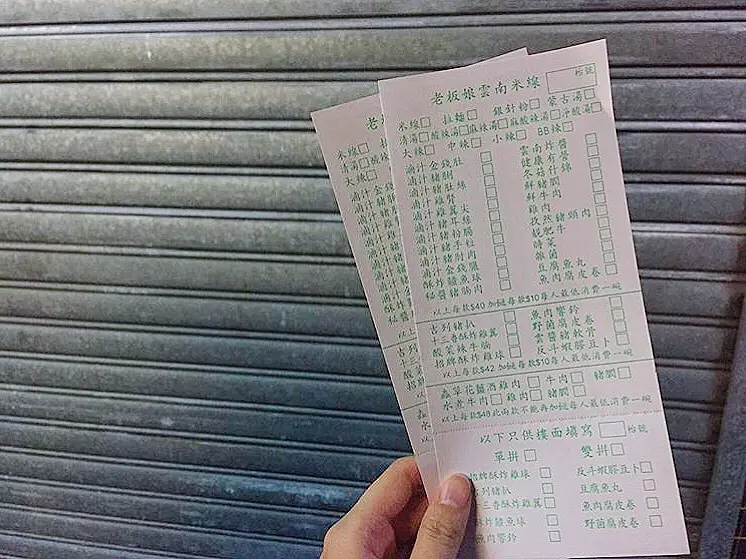 老板娘雲南米線 枱號
米線□ 拉麵□ 銀針粉□ 蒙古湯□
清湯□酸辣湯□麻辣湯□麻酸辣湯□淨酸湯□
大辣□ 中辣□ 小辣□ BB辣□
滷汁金錢肚□ 雲南炸醬□
滷汁豬脷□ 健康有營□
滷汁豬肚絲□ 冬菇什錦□
滷汁雞腎□ 鮮豬膶□
滷汁雞翼尖□ 鮮牛肉□
滷汁豬耳絲□ 雞肉□
滷汁豬粉腸□ 孜然豬頸肉□
滷汁豬手粒□ 靚肥牛□
滷汁豬肘肉□ 時菜□
滷汁金錢□ 雜菌□
酥炸鯪魚球□ 豆腐魚丸□
秘醬豬腸肉□ 魚肉腐皮卷□
以上每款$40 加餸每款$10每人最低消費一碗
吉列豬扒□ 魚肉響鈴□
十三香酥炸雞翼□ 野菌腐皮卷□
酸菜辣牛𦟌□ 雲醬豬軟骨□
招牌酥炸雞球□ 反斗蝦膠豆卜□
以上每款$42 加餸每款$10每人最低消費一碗
蟲草花鹽酒雞肉□ 牛肉□ 豬膶□
水煮牛肉□ 雞肉□ 豬膶□
以上每款$48此兩款不能再加餸每人最低消費一碗
以下只供樓面填寫 □枱號
單拼□ 雙拼□
招牌酥炸雞球□ 反斗蝦膠豆卜□
吉列豬扒□ 豆腐魚丸□
十三香酥炸雞翼□ 魚肉腐皮卷□
酥炸鯪魚球□ 野菌腐皮卷□
魚肉響鈴□